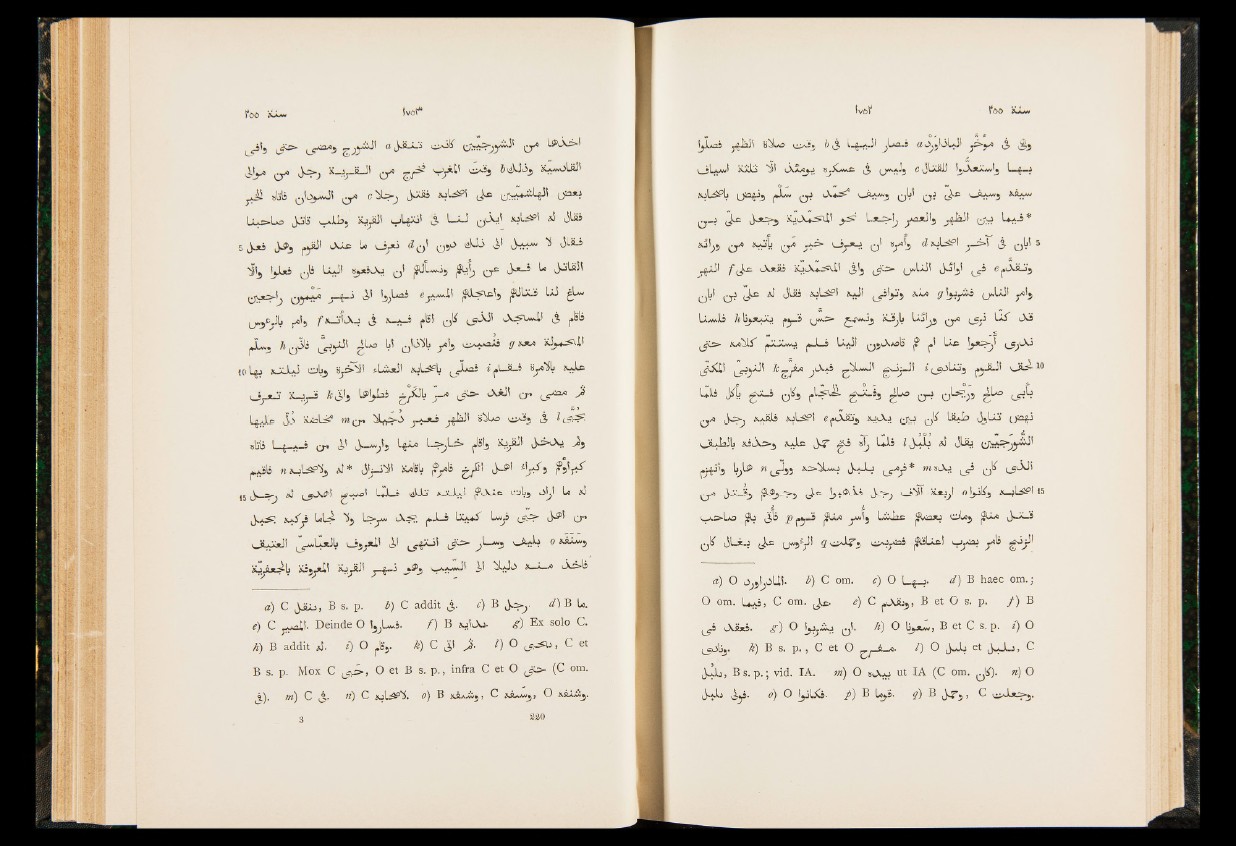 سنة ٢٥٥ ١٧٥٢
وفى فى مؤخّر الباذاوَرْد a فصار اليها b فى وقت صلاة الظهر فصلّوا
بها واستعدّوا للقتال c وليس فى عسكره يومئذ الّا ثلثة اسياف
سيفه وسيف علىّ بن ابان وسيف محمّد بن سَلْم ونهض باصحابه
*فيما بين الظهر والعصر راجعا نحو المحمّديّة وجعل علىّ بن
5 ابان فى آخر اصحابه d وامره ان يعرف خبر مَن يأتيه من ورائه
وتقدّم e فى اوائل الناس حتى وافى المحمّديّة فقعد على f النهر
وامر الناس فشربوا g منه وتوافى اليه اصحابه فقال له علىّ بن ابان
قد كنّا نرى من ورائنا بارقة ونسمع حسّ قوم يتبعونا h فلسنا
ندرى أرجعوا عنا ام هم قاصدون الينا فلم يستتمّ كلامه حتى
10 لحق القوم وتنادى i الزنج السلاح فبدر مفرّج k النوبىّ المكنّى
بأبى صالح ورَيْحان بن صالح وفَتْح الحَجّام وكان فتح يأكل فلمّا
نهض تناول طبقا كان بين يديه وتقدّم e اصحابه فلقيه رجل من
الشُّورَجيّين يقال له بُلْبُل l فلمّا رآه فتح حمل عليه وحذفه بالطبق
الذى كان فى يده m *فرمى بلبل بسلاحه وولّى n هاربا وانهزم
15 اصحابه وكانوا o اربعة آلاف رجل فذهبوا على وجوههم وقُتل من
قتل منهم ومات بعضهم عطشا وأُسر منهم قوم p فأُتى بهم صاحب
الزنج فامر بضرب اعناقهم فضُربت وحملت q الرؤوس على بغل كان
a) O المادراورد. b) C om. c) O بها. d) B haec om.;
O om. فيما, C om. على e) C ونقدم, B et O s. p. f) B
فقعد فى. g) O ان يشربوا. h) O وسعونا, B et C s. p. i) O
ونادى. k) B s. p., C et O مفرج. l) O بليل et بلبل, C
بُلبُل, B s. p.; vid. IA. m) O بيده ut IA (C om. كان). n) O
بلبل فولى. o) O فكانوا. p) B قوما. q) B وحمل, C وجعلت.
سنة ٢٥٥ ١٧٥٣
اخذها من الشورجيّين كانت تنقل a الشورج ومضى حتى وافى
القادسيّة وذلك b وقت المغرب فخرج من القرية رجل من موالى
بعض الهاشميّين على اصحابه فقتل رجلا c من السودان فاتاه الخبر
فقال له اصحابه ايذن لنا فى انتهاب القرية وطلب قاتل صاحبنا
5 فقال لا سبيل الى ذلك دون ان d نعرف ما عند القوم وهل فعل
القاتل ما فعل عن رأيهم ونسألهم ان يدفعوه الينا فان فعلوا والّا
ساغ لنا قتالهم واعجلهم المسير e فصاروا الى نهر مَيْمون راجعين
فاقام فى المسجد الذى كان اقام فيه فى بدأته f وامر بالرءوس
المحمولة معه g فنُصبت وامر بالاذان ابا صالح النوبىّ فأذّن h وسلّم
10 عليه بالامرة فقام i فصلّى باصحابه العشاء الآخرة وبات ليلته بها
ثم مضى من الغد حتى مرّ بالكَرْخ فطواها واتى k قرية تعرف
بجُبَّى l فى وقت صلاة الظهر فعبر دُجَيلا من m مخاضة دُلّ عليها
ولم يدخل القرية واقام خارجا منها وارسل الى من فيها فاتاه
كبراؤهم وكبراء اهل الكرخ فامرهم باقامة الانزال *له ولاصحابه n فاقيم
15 له ما اراد وبات عندهم ليلته تلك فلمّا اصبح اهدى له رجل
من اهل جبّى فرسا كميتا فلم يجد سرجا ولا لجاما فركبه بحبل
وسَنَفَه o بليف وسار حتى انتهى الى المعروف بالعبّاسىّ العتيق
فاخذ منه دليلا الى السِّيب وهو نهر القرية المعروفة بالجعفريّة
a) C ننقل, B s. p. b) C addit فى. c) B رجل. d) B ما.
e) C المصير. Deinde O فساروا. f) B بدايته. g) Ex solo C.
h) B addit له. i) O وقام. k) C ثم الى. l) O بجى, C et
B s. p. Mox C جبى, O et B s. p., infra C et O حتى (C om.
فى). m) C فى. n) C لاصحابه. o) B وشنفه, C وسنفه, O وشنقه.
3 220